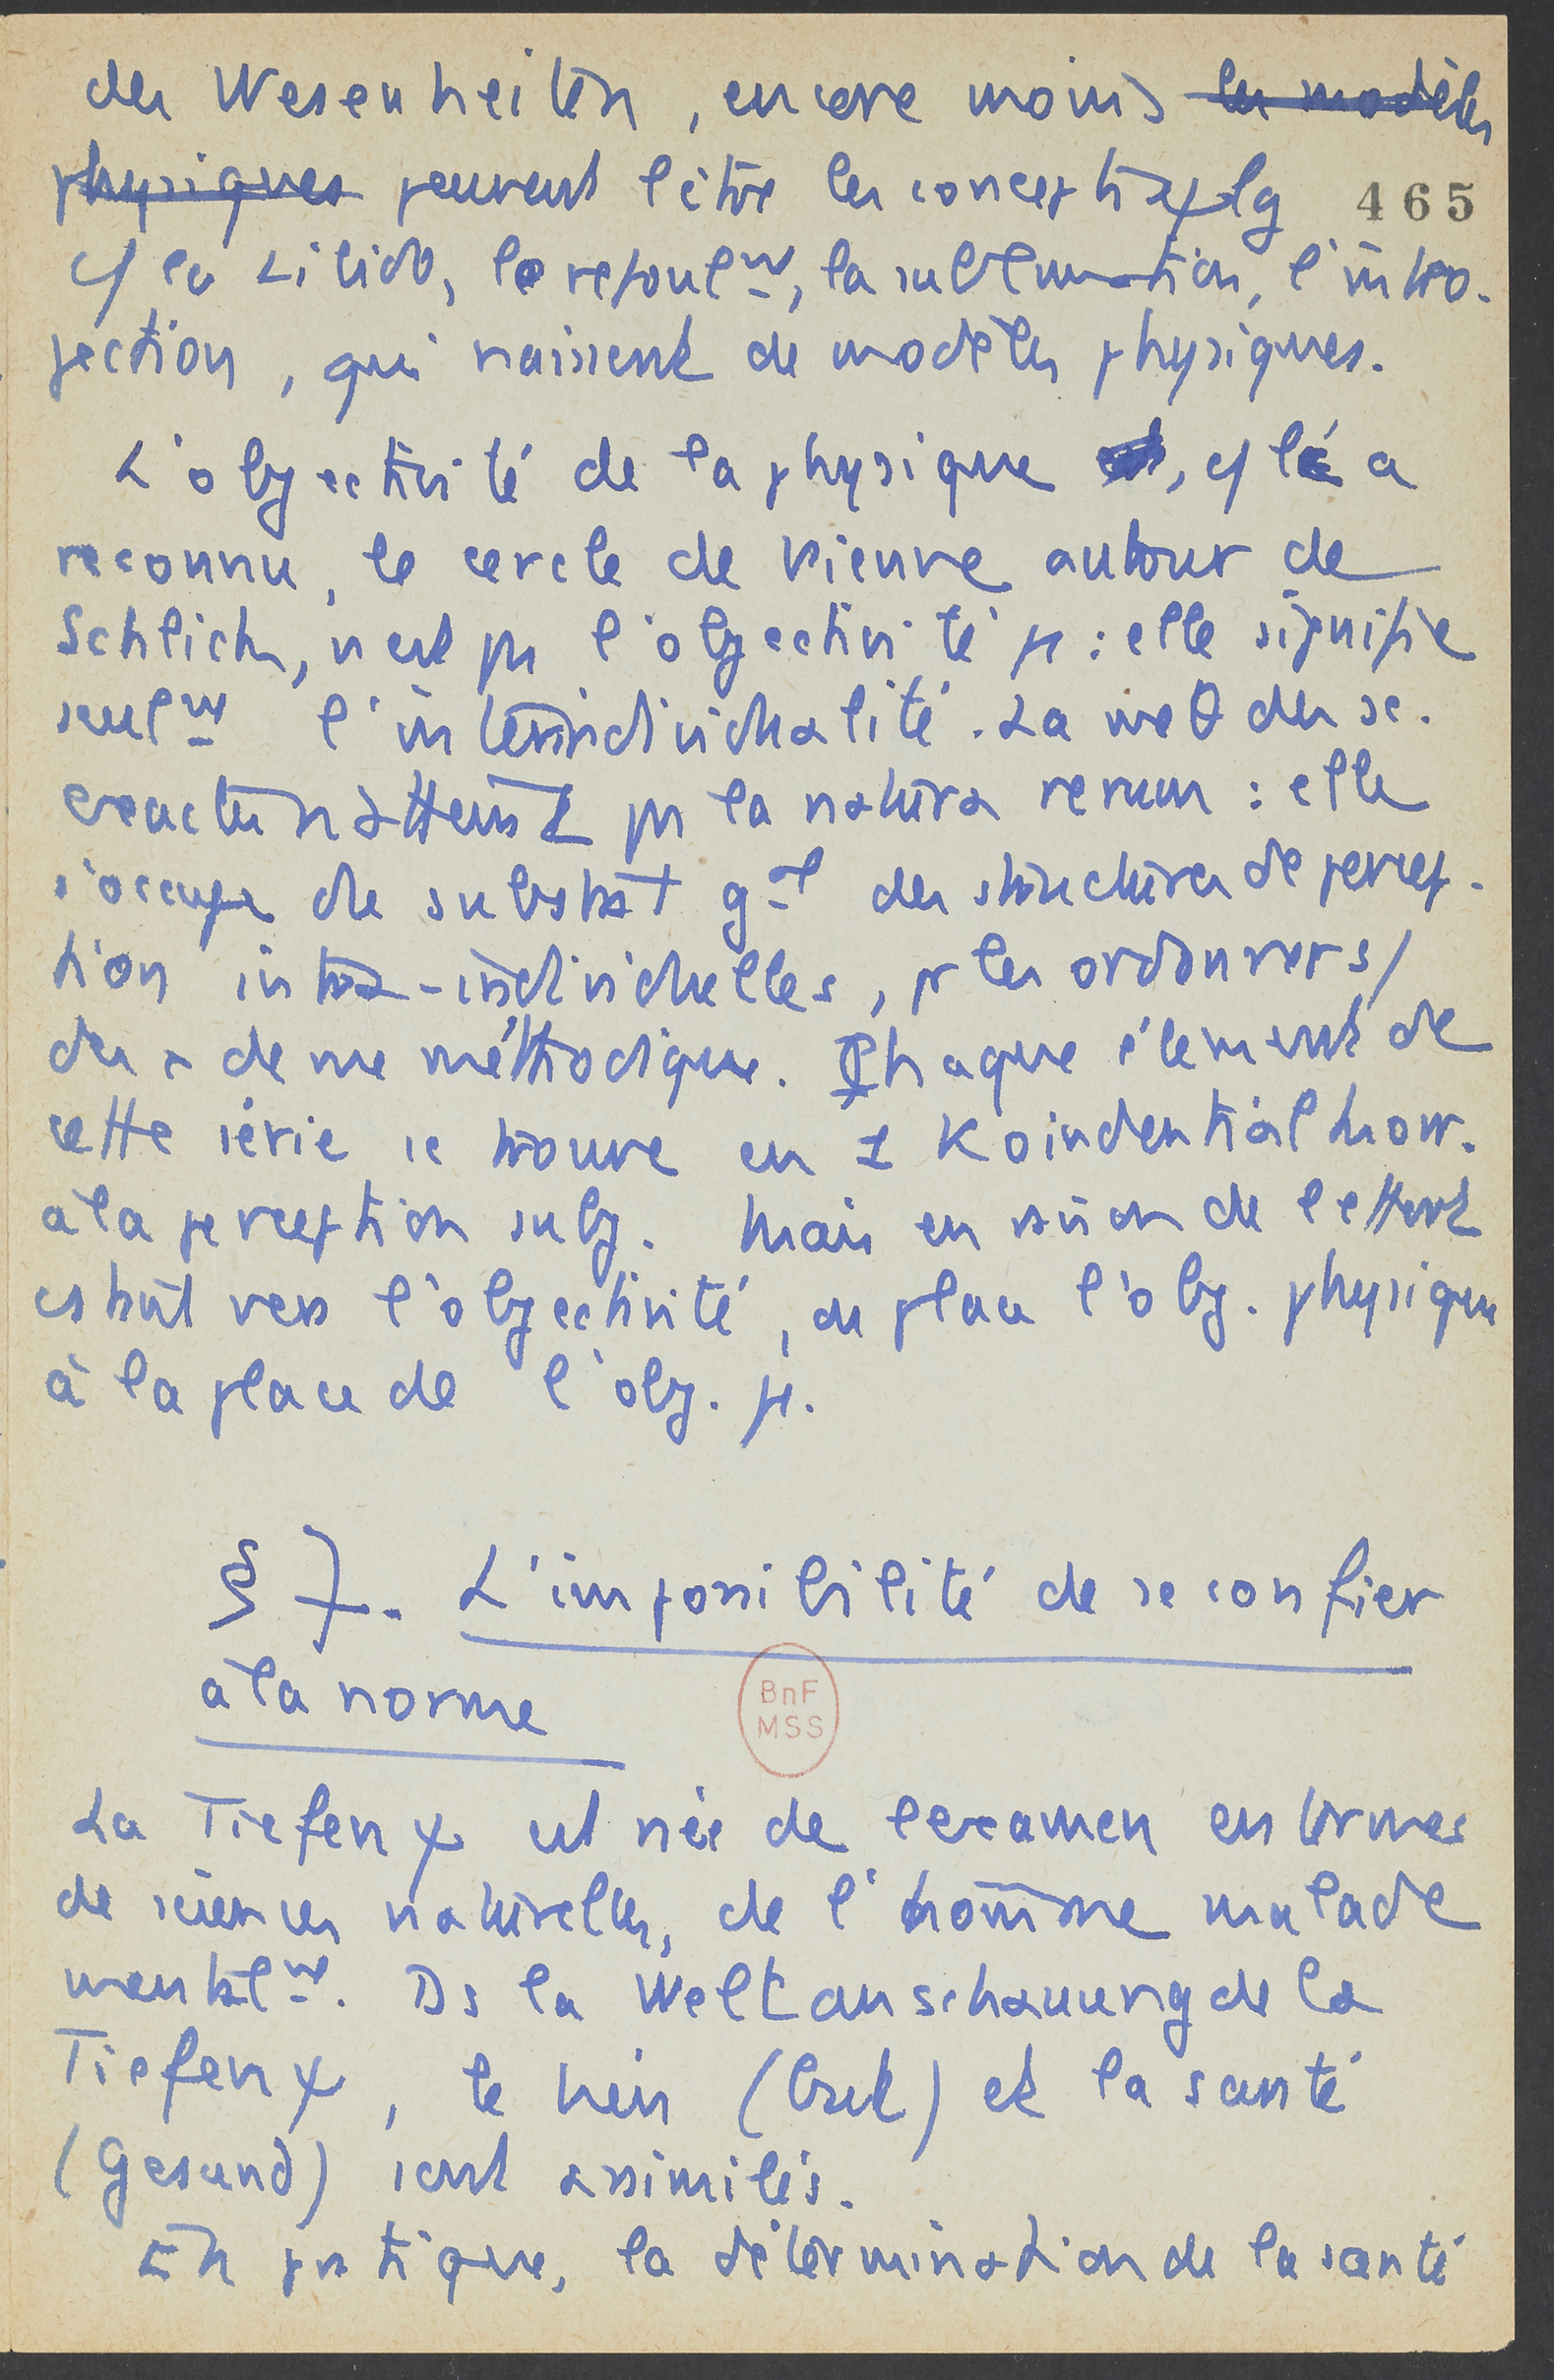 des Wesenheiten, encore moins les modèles
physiques peuvent l'être les concepts ψlg
c/ la Libido, le refoul^mt, la sublimation, l'intro-
jection, qui naissent de modèles physiques.
465
L'objectivité de la physique, c/ l'a
reconnu, le cercle de Vienne autour de
Schlick, n'est pas l'objectivité φ : elle signifie
seul^mt l'interindividualité. La methode des sc.
exactes n'atteint pas la natura rerum : elle
s'occupe du substrat g^al des structures de percep-
tion intra-individuelles, pr les ordonner s/
des de me méthodique. Chaque élément de
cette série se trouve en 1 Koindential
à la perception subj. Mais en de l'effort
vers l'objectivité, on place l'obj. physique
à la place de l'obj. φ.
§ 7. L'impossibilité de se confier
à la norme
BnF
MSS
La Tiefen ψ est née de l'examen en termes
de sciences naturelles, de l'homme malade
mental^mt. Ds la Weltanschauung de la
Tiefen ψ, le bien (Gut) et la santé
(Gesund) sont assimilés.
En pratique, la détermination de la santé